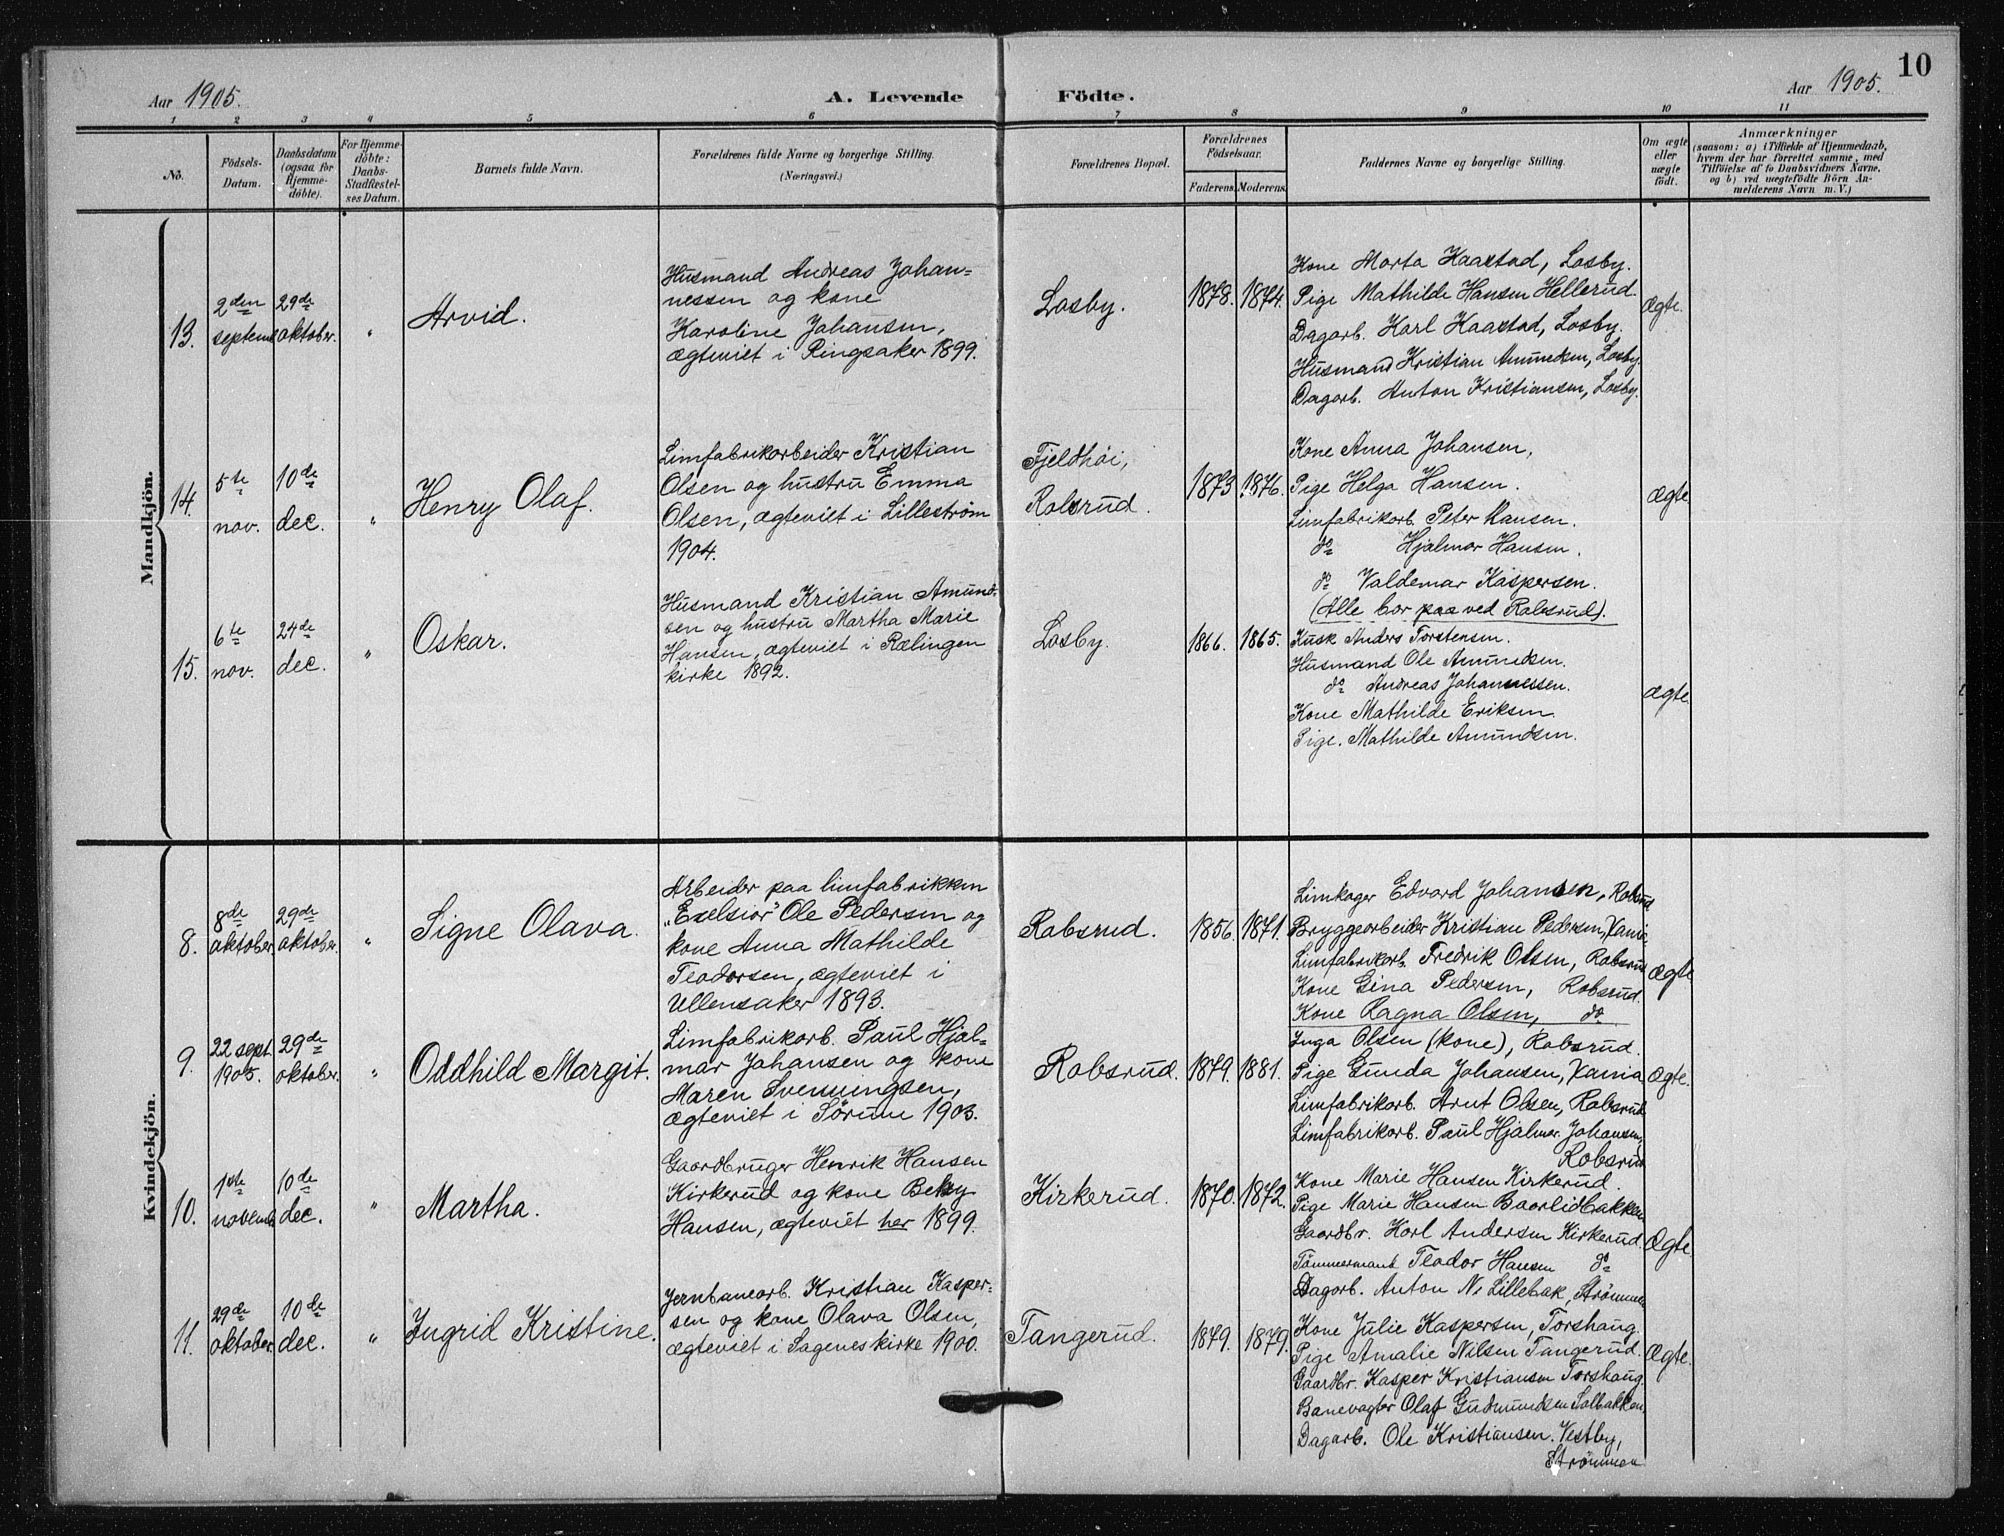 10
Aar 1905.
A. Levende Födte.
Aar 1905.
1 2 3 4 5 6 7 8 9 10 11
No.
Födsels-Datum.
Daabsdatum (ogsaa for Hjemmedöbte).
For Hjemmedöbte: Daabs-Stadfæstelses Datum.
Barnets fulde Navn.
Forældrenes fulde Navne og borgerlige Stilling.
(Næringsvei.)
Forældrenes Bopæl.
Forældrenes Födselsaar.
Faderens. Moderens.
Faddernes Navne og borgerlige Stilling.
Om ægte eller uægte födt.
Anmærkninger
(saasom: a) i Tilfælde af Hjemmedaab,
hvem der har forrettet samme, med
Tilföielse af to Daabsvidners Navne,
og b) ved uægtefödte Börn An-
melderens Navn m. V.)
Mandkjön.
13.
2den
septemb.
29de
oktober.
"
Arvid.
Husmand Andreas Johan-
nessen og kone
Karoline Johansen,
ægteviet i Ringsaker 1899.
Losby.
1878.
1874.
Kone Marta Kaastad, Losby.
Pige Mathilde Hansen Hellerud.
Dagarb. Karl Kaastad, Losby.
Husmand Kristian Amundsen, Losby.
Dagarb. Anton Kristiansen, Losby.
Ægte.
14.
5te
nov.
10de
dec.
"
Henry Olaf.
Limfabrikarbeider Kristian
Olsen og hustru Emma
Olsen, ægteviet i Lillestrøm
1904.
Fjeldhöi,
Robsrud.
1873.
1876.
Kone Anna Johansen,
Pige Helga Hansen.
Limfabrikarb. Peter Hansen.
do Hjalmar Hansen.
do Valdemar Kaspersen.
(Alle bor paa ved Robsrud).
Ægte
15.
6te
nov.
24de
dec.
"
Oskar.
Husmand Kristian Amund-
sen og hustru Martha Marie
Hansen, ægteviet i Rælingen
kirke 1892.
Losby.
1866.
1865.
Kusk Anders Torstensen.
Husmand Ole Amundsen.
do Andreas Johannessen.
Kone Mathilde Eriksen.
Pige. Mathilde Amundsen.
Ægte
Kvindekjön.
8.
8de
oktober.
29de
oktober.
"
Signe Olava.
Arbeider paa limfabrikken
„Exelsior" Ole Pedersen og
kone Anna Mathilde
Teodorsen, ægteviet i
Ullensaker 1893.
Robsrud.
1856.
1871.
Limkoger Edvard Johansen, Robsrud
Bryggearbeider Kristian Pedersen, Vania
Limfabrikarb. Fredrik Olsen, Robsrud
Kone Gina Pedersen, Robsrud.
Kone Ragna Olsen, do
Ægte
9.
22 sept.
1905.
29de
oktober.
"
Oddhild Margit.
Limfabrikarb. Paul Hjal-
mar Johansen og kone
Maren Svenungsen,
ægteviet i Sørum 1903.
Robsrud.
1879.
1881.
Inga Olsen (kone), Robsrud.
Pige Gunda Johansen, Vania
Limfabrikarb. Arnt Olsen, Robsrud
Limfabrikarb. Paul Hjalmar Johansen,
Robsrud
Ægte.
10.
1ste
novemb.
10de
dec.
"
Martha.
Gaardbruger Henrik Hansen
Kirkerud og kone Betsy
Hansen, ægteviet her 1899.
Kirkerud.
1870.
1872.
Kone Marie Hansen Kirkerud.
Pige Marie Hansen Baarlidbakken
Gaardbr. Karl Andersen Kirkerud.
Tømmermand Teodor Hansen do
Dagarb. Anton N. Lillebæk, Strømmen
Ægte.
11.
29de
oktober.
10de
dec.
"
Ingrid Kristine.
Jernbanearb. Kristian Kasper-
sen og kone Olava Olsen,
ægteviet i Sagenes kirke 1900.
Tangerud.
1879.
1879.
Kone Julie Kaspersen, Torshaug.
Pige Amalie Nilsen Tangerud.
Gaardbr. Kasper Kristiansen Torshaug.
Banevogter Olaf Gudmundsen Solbakken.
Dagarb. Ole Kristiansen. Vestby,
Strømmen
Ægte.